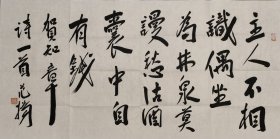 主人不相
識偶坐
為林泉莫
謾愁沽酒
囊中自
有錢
賀知章
詩一首